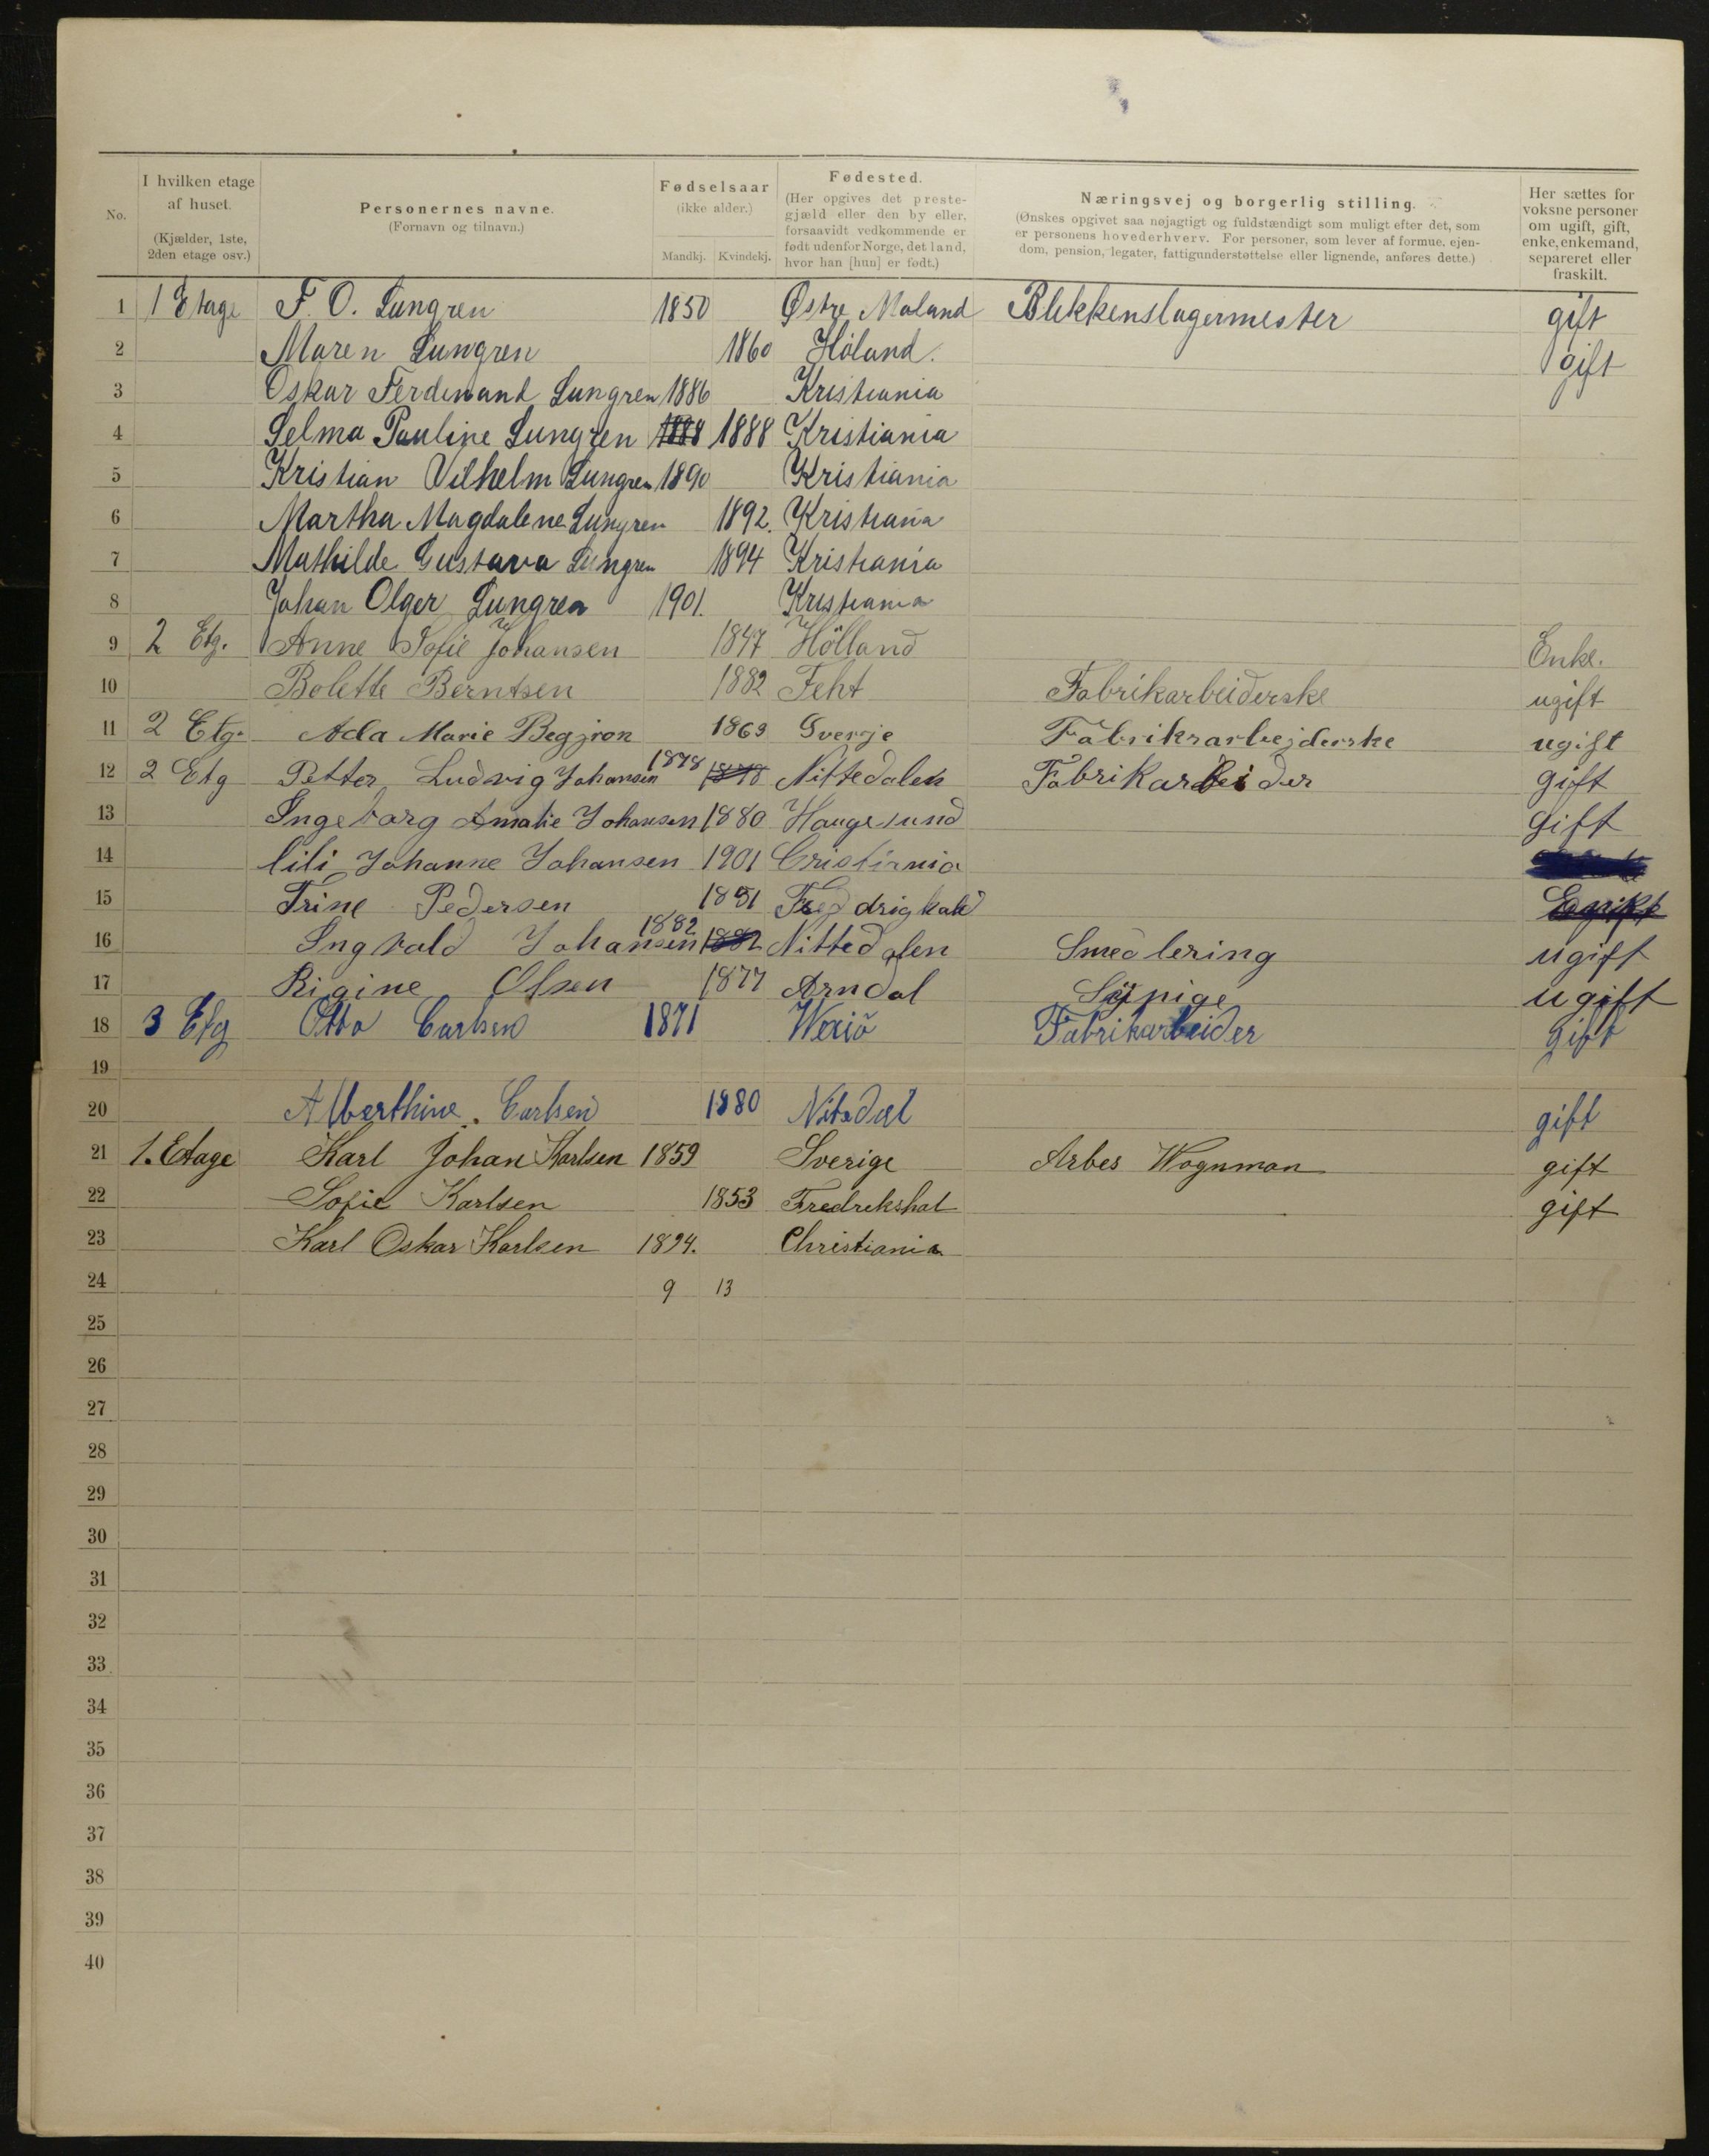 No. I hvilken etage af huset. (Kjælder, 1ste, 2den etage osv.) Personernes navne. (Fornavn og tilnavn.) Fødselsaar (ikke alder.) Mandkj. Kvindekj. Fødested. (Her opgives det prestegjæld eller den by eller, forsaavidt vedkommende er født udenfor Norge, det land, hvor han [hun] er født.) Næringsvej og borgerlig stilling. (Ønskes opgivet saa nøjagtigt og fuldstændigt som muligt efter det, som er personens hovederhverv. For personer, som lever af formue, ejendom, pension, legater, fattigunderstøttelse eller lignende, anføres dette.) Her sættes for voksne personer om ugift, gift, enke, enkemand, separeret eller fraskilt.
1 1 Etage F. O. Lungren 1850 Østre Moland Blikkenslagermester gift
2 Maren Lungren 1860 Höland. gift
3 Oskar Ferdinand Lungren 1886 Kristiania
4 Selma Pauline Lungren 1888 1888 Kristiania
5 Kristian Vilhelm Lungren 1890 Kristiania
6 Martha Magdalene Lungren 1892. Kristiania
7 Mathilde Gustava Lungren 1894 Kristiania
8 Johan Olger Lungren 1901. Kristiania
9 2 Etg. Anne Sofie Johansen 1847 Hölland Enke.
10 Bolette Berntsen 1882 Feht Fabrikarbeiderske ugift
11 2 Etg. Ada Marie 1869 Sverje Fabriksarbejderske ugift
12 2 Etg Petter Ludvig Johansen 1878 1878 Nittedalen Fabrikarbeider gift
13 Ingeborg Amalie Johansen 1880 Haugesund Gift
14 Lili Johanne Johansen 1901 Cristiania
15 Trine Pedersen 1851
16 Ingvald Johansen 1882 1882 Nittedalen Smedlering ugift
17 Rigine Olsen 1877 Arndal Sypige ugift
18 3 Etg Otto Carlsen 1871 Wexiö Fabrikarbeider gift
19
20 Alberthine. Carlsen 1880 Nitedal gift
21 1. Etage Karl Johan Karlsen 1859 Sverige Arbes Wognman gift
22 Sofie Karlsen 1853 Fredrekshal gift
23 Karl Oskar Karlsen 1894. Christiania
24 9 13
25
26
27
28
29
30
31
32
33
34
35
36
37
38
39
40